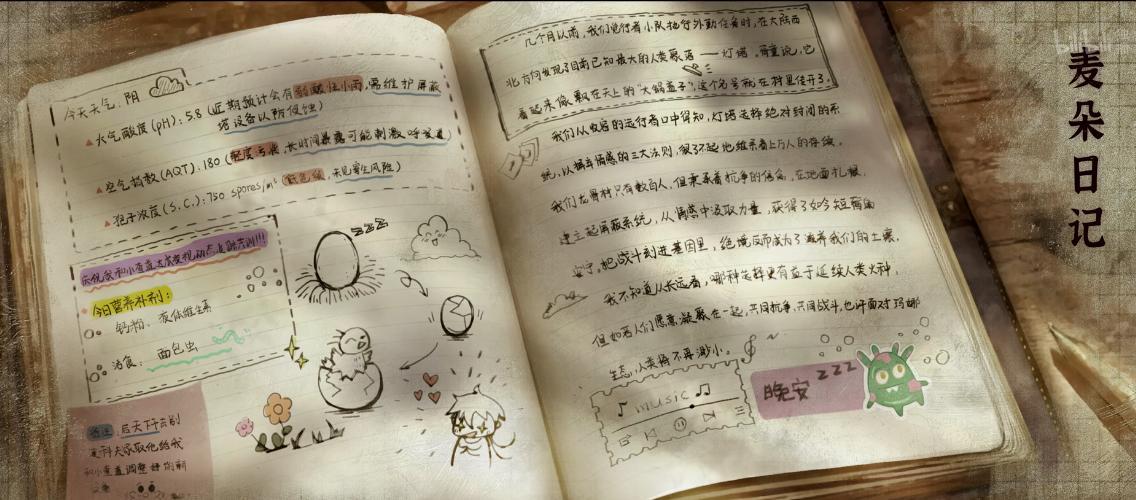 今天天气：阴
大气酸度(pH)：5.8（近期预计会有弱酸性小雨，需维护屏蔽
塔设备以防侵蚀）
空气指数(AQI)：180（轻度污染，长时间暴露可能刺激呼吸道）
孢子浓度(S.C.)：750 spores/m³（ 未见寄生风险）
今日营养补剂：
钙粉、液体维生素
活食：面包虫
备注：后天下午去别
zzz
几个月以前，我们逆行者小队执行外勤任务时，在大陆西
北方向发现了目前已知最大的人类聚落——灯塔。 说，它
看起来像飘在天上的“大锅盖子”，这个名号就在村里传开了。
我们从 的逆行者口中得知，灯塔选择绝对封闭的系
统，以摒弃情感的三大法则，很了不起地维系着上万人的存续。
我们龙骨村只有数百人，但秉承着抗争的信念，在地面扎根，
建立起屏蔽系统，从情感中汲取力量，获得了如今短暂的
安宁。把战斗刻进基因里，绝境反而成为了滋养我们的土壤。
我不知道从长远看，哪种选择更有益于延续人类火种，
但如若人们愿意凝聚在一起，共同抗争、共同战斗，也许面对玛娜
生态，人类将不再渺小。
music
晚安 zzz
麦朵日记